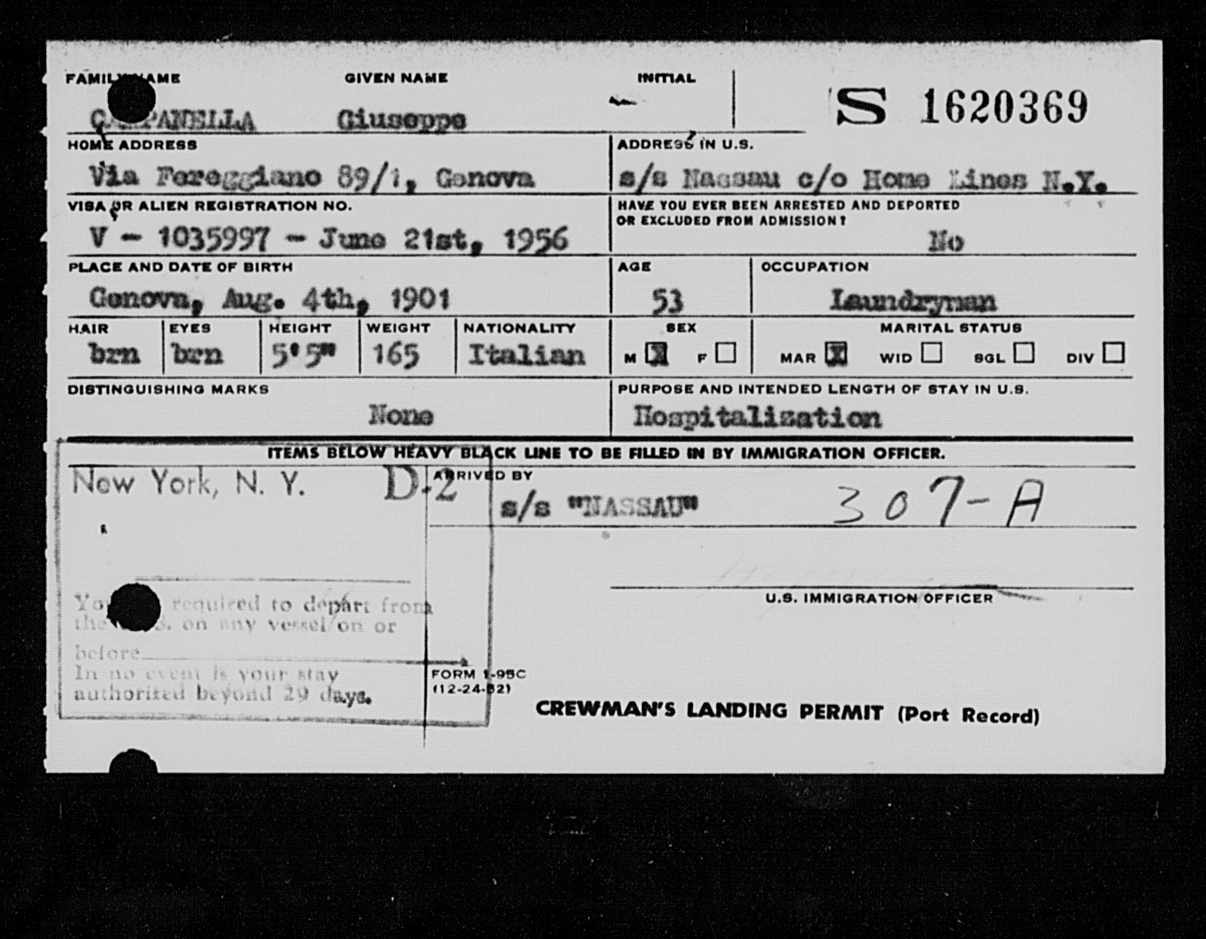 FAMILY NAME GIVEN NAME INITIAL
CAMPANELLA Giuseppe
S 1620369
HOME ADDRESS ADDRESS IN U.S.
Via Fereggiano 89/1, Genova s/s Nassau c/o Home Lines N.Y.
VISA OR ALIEN REGISTRATION NO. HAVE YOU EVER BEEN ARRESTED AND DEPORTED
OR EXCLUDED FROM ADMISSION?
V - 1035997 - June 21st, 1956 No
PLACE AND DATE OF BIRTH AGE OCCUPATION
Genova, Aug. 4th, 1901 53 Laundryman
HAIR EYES HEIGHT WEIGHT NATIONALITY SEX MARITAL STATUS
brn brn 5'5" 165 Italian M X F MAR X WID SGL DIV
DISTINGUISHING MARKS PURPOSE AND INTENDED LENGTH OF STAY IN U.S.
None Hospitalization
ITEMS BELOW HEAVY BLACK LINE TO BE FILLED IN BY IMMIGRATION OFFICER.
New York, N. Y. D-2 ARRIVED BY
s/s "NASSAU" 307-A
You required to depart from
the U.S. on any vessel on or
before
In no event is your stay
authorized beyond 29 days.
U.S. IMMIGRATION OFFICER
FORM I-95C
(12-24-52)
CREWMAN'S LANDING PERMIT (Port Record)